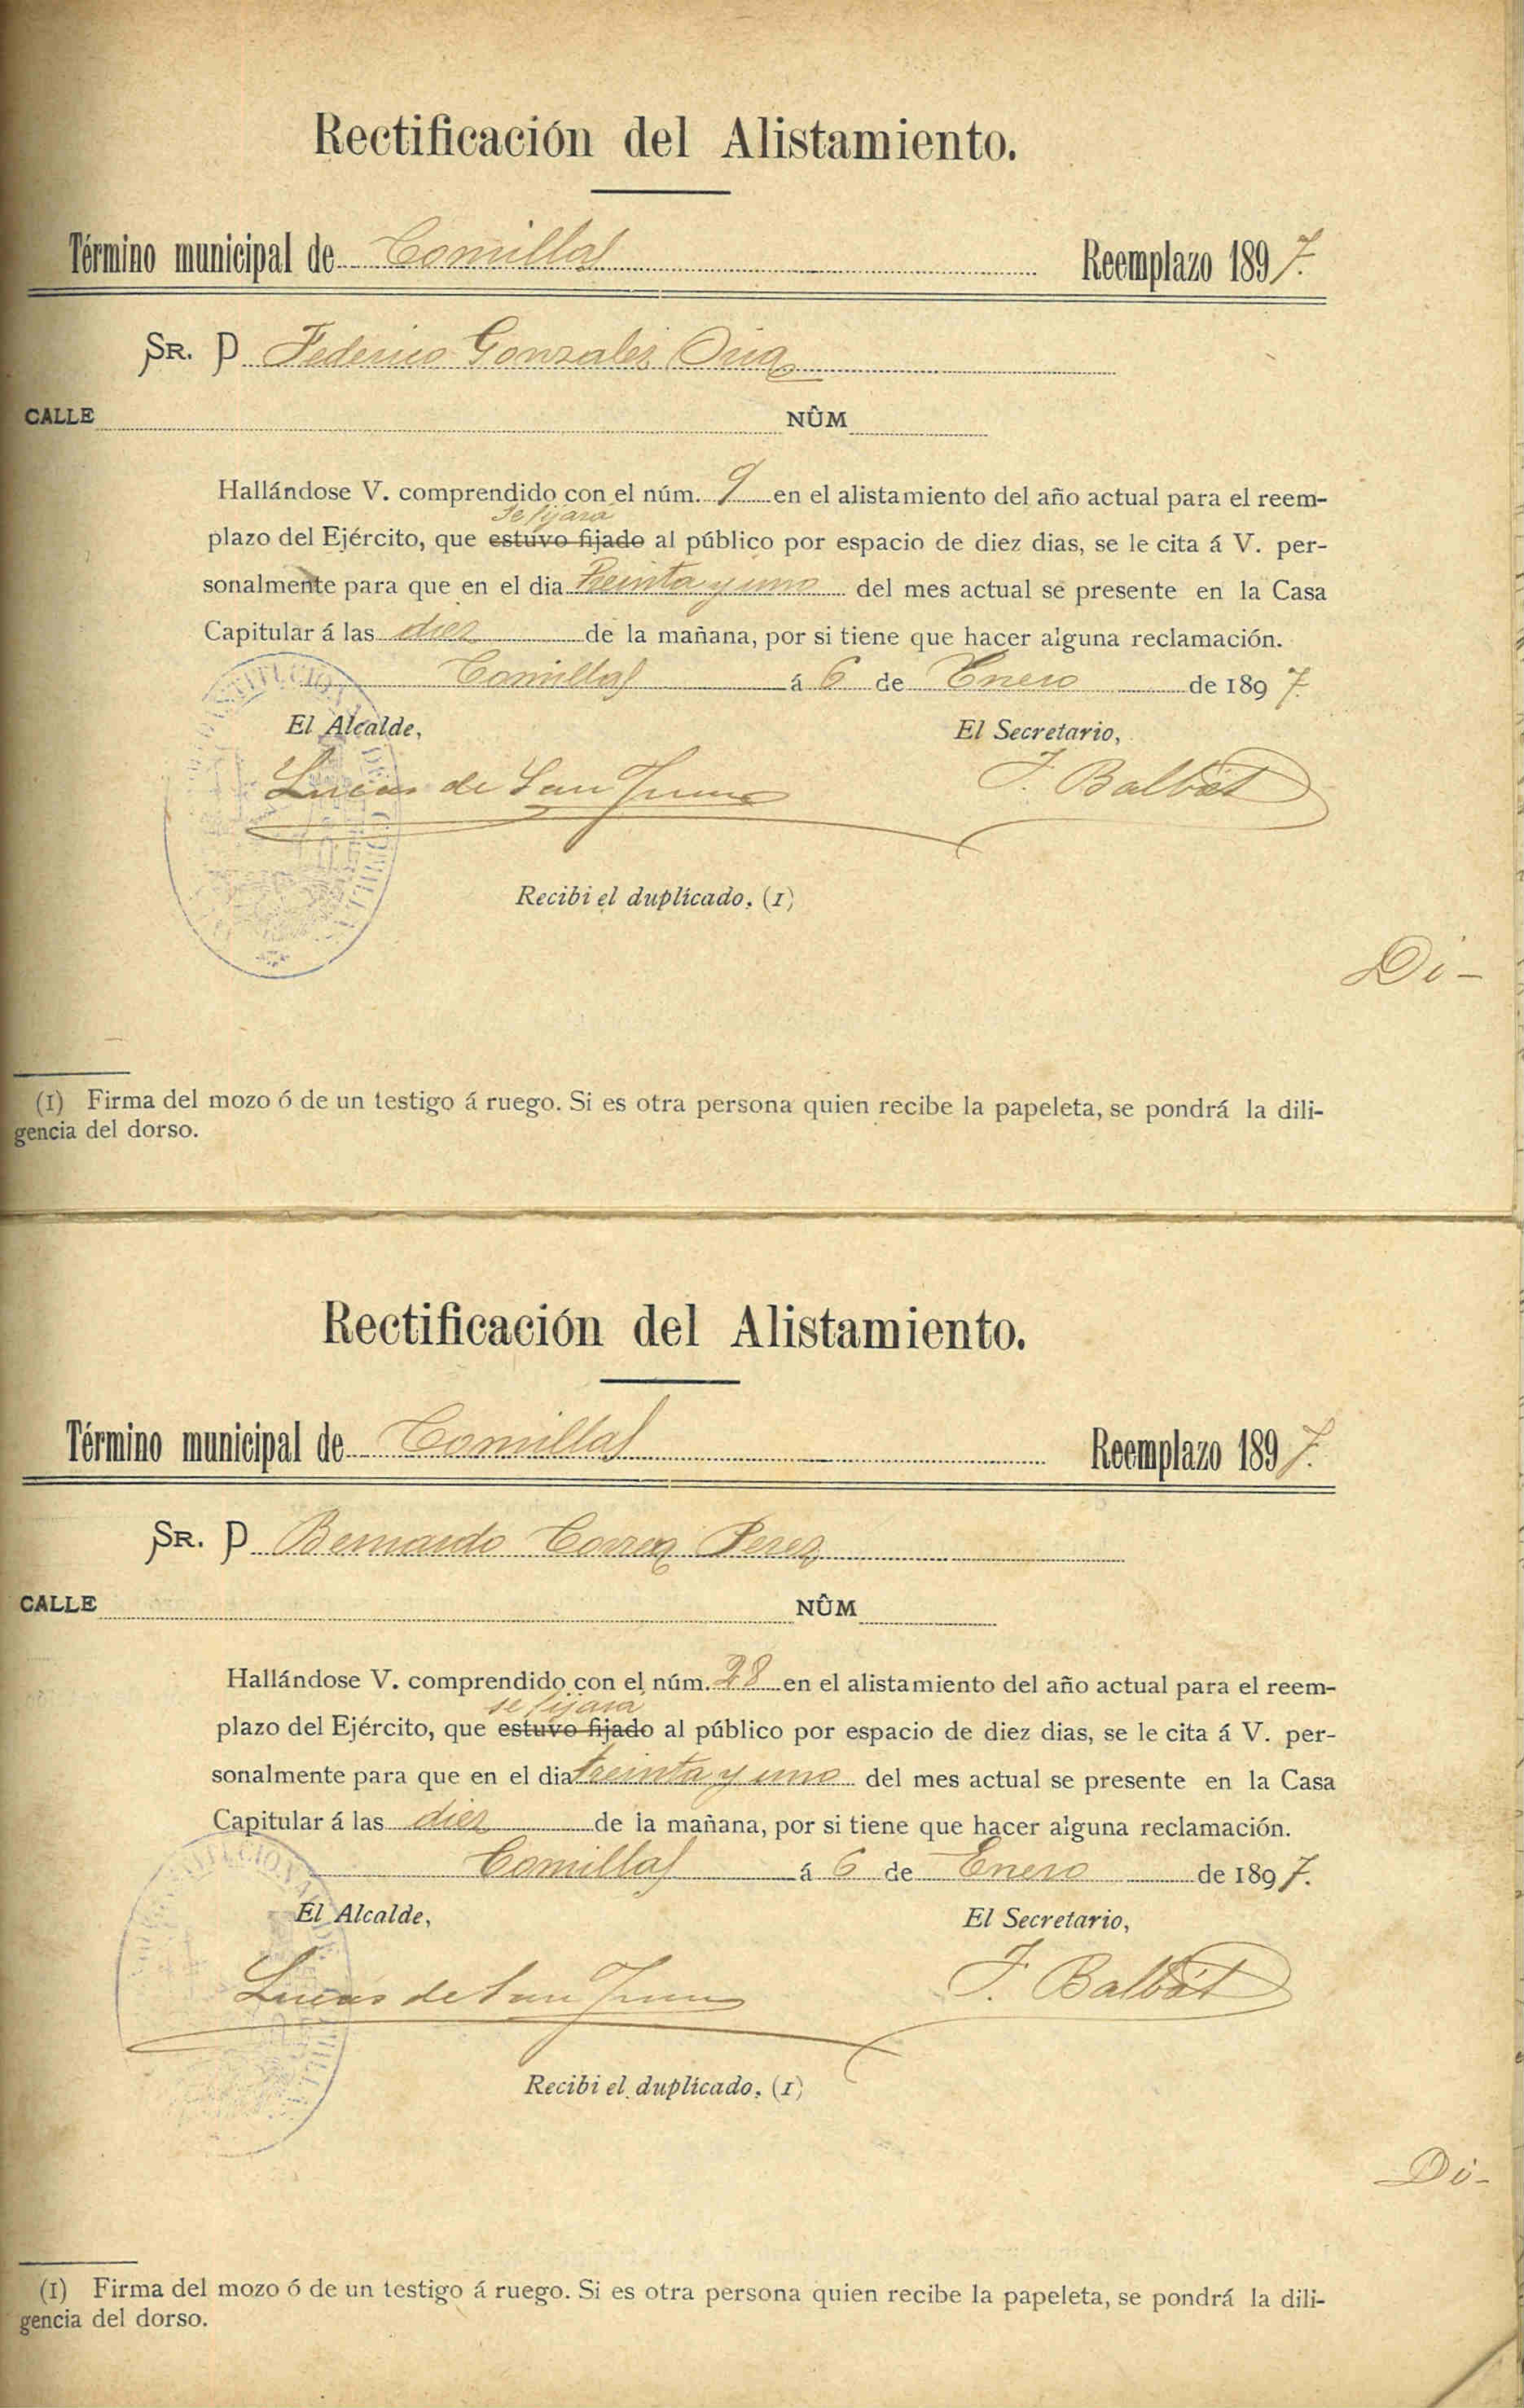 Rectificación del Alistamiento.
Término municipal de Comillas Reemplazo 1897.
SR. D Federico Gonzalez
CALLE NÚM
Hallándose V. comprendido con el núm. 9 en el alistamiento del año actual para el reem-
se fijará
plazo del Ejército, que estuvo fijado al público por espacio de diez dias, se le cita á V. per-
sonalmente para que en el dia treinta y uno del mes actual se presente en la Casa
Capitular á las diez de la mañana, por si tiene que hacer alguna reclamación.
Comillas á 6 de Enero de 1897.
El Alcalde, El Secretario,
Lucas de San Juan J. Balbát
Recibi el duplicado. (1)
Di-
(1) Firma del mozo ó de un testigo á ruego. Si es otra persona quien recibe la papeleta, se pondrá la dili-
gencia del dorso.
Rectificación del Alistamiento.
Término municipal de Comillas Reemplazo 1897.
SR. D Bernardo Correa Perez
CALLE NÚM
Hallándose V. comprendido con el núm. 28 en el alistamiento del año actual para el reem-
se fijará
plazo del Ejército, que estuvo fijado al público por espacio de diez dias, se le cita á V. per-
sonalmente para que en el dia treinta y uno del mes actual se presente en la Casa
Capitular á las diez de la mañana, por si tiene que hacer alguna reclamación.
Comillas á 6 de Enero de 1897.
El Alcalde, El Secretario,
Lucas de San Juan J. Balbát
Recibi el duplicado. (1)
Di-
(1) Firma del mozo ó de un testigo á ruego. Si es otra persona quien recibe la papeleta, se pondrá la dili-
gencia del dorso.